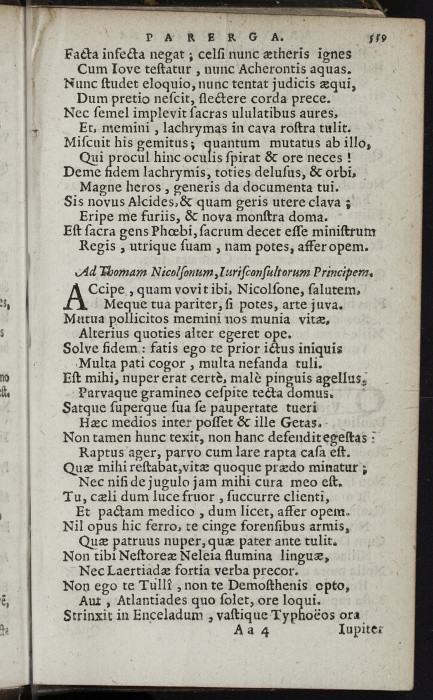 PARERGA. 559
Facta infecta negat ; celsi nunc ætheris ignes
Cum Iove testatur , nunc Acherontis aquas.
Nunc studet eloquio, nunc tentat judicis æqui,
Dum pretio nescit, flectere corda prece.
Nec semel implevit sacras ululatibus aures,
Et, memini , lachrymas in cava rostra tulit.
Miscuit his gemitus ; quantum mutatus ab illo,
Qui procul hinc oculis spirat & ore neces !
Deme fidem lachrymis, toties delusus, & orbi,
Magne heros , generis da documenta tui.
Sis novus Alcides, & quam geris utere clava ;
Eripe me furiis, & nova monstra doma.
Est sacra gens Phœbi, sacrum decet esse ministrum
Regis , utrique suam , nam potes, affer opem.
Ad Thomam Nicolsonum, Iurisconsultorum Principem.
ACcipe , quam vovit ibi, Nicolsone, salutem,
Meque tua pariter, si potes, arte juva.
Mutua pollicitos memini nos munia vitæ,
Alterius quoties alter egeret ope.
Solve fidem : fatis ego te prior ictus iniquis
Multa pati cogor , multa nefanda tuli.
Est mihi, nuper erat certè, malè pinguis agellus,
Parvaque gramineo cespite tecta domus.
Satque superque sua se paupertate tueri
Hæc medios inter posset & ille Getas.
Non tamen hunc texit, non hanc defendit egestas :
Raptus ager, parvo cum lare rapta casa est.
Quæ mihi restabat, vitæ quoque prædo minatur ;
Nec nisi de jugulo jam mihi cura meo est.
Tu, cæli dum luce fruor , succurre clienti,
Et pactam medico , dum licet, affer opem.
Nil opus hic ferro, te cinge forensibus armis,
Quæ patruus nuper, quæ pater ante tulit.
Non tibi Nestoreæ Neleia flumina linguæ,
Nec Laertiadæ fortia verba precor.
Non ego te Tullî , non te Demosthenis opto,
Aut , Atlantiades quo solet, ore loqui.
Strinxit in Enceladum , vastique Typhoëos ora
Aa 4 Iupiter